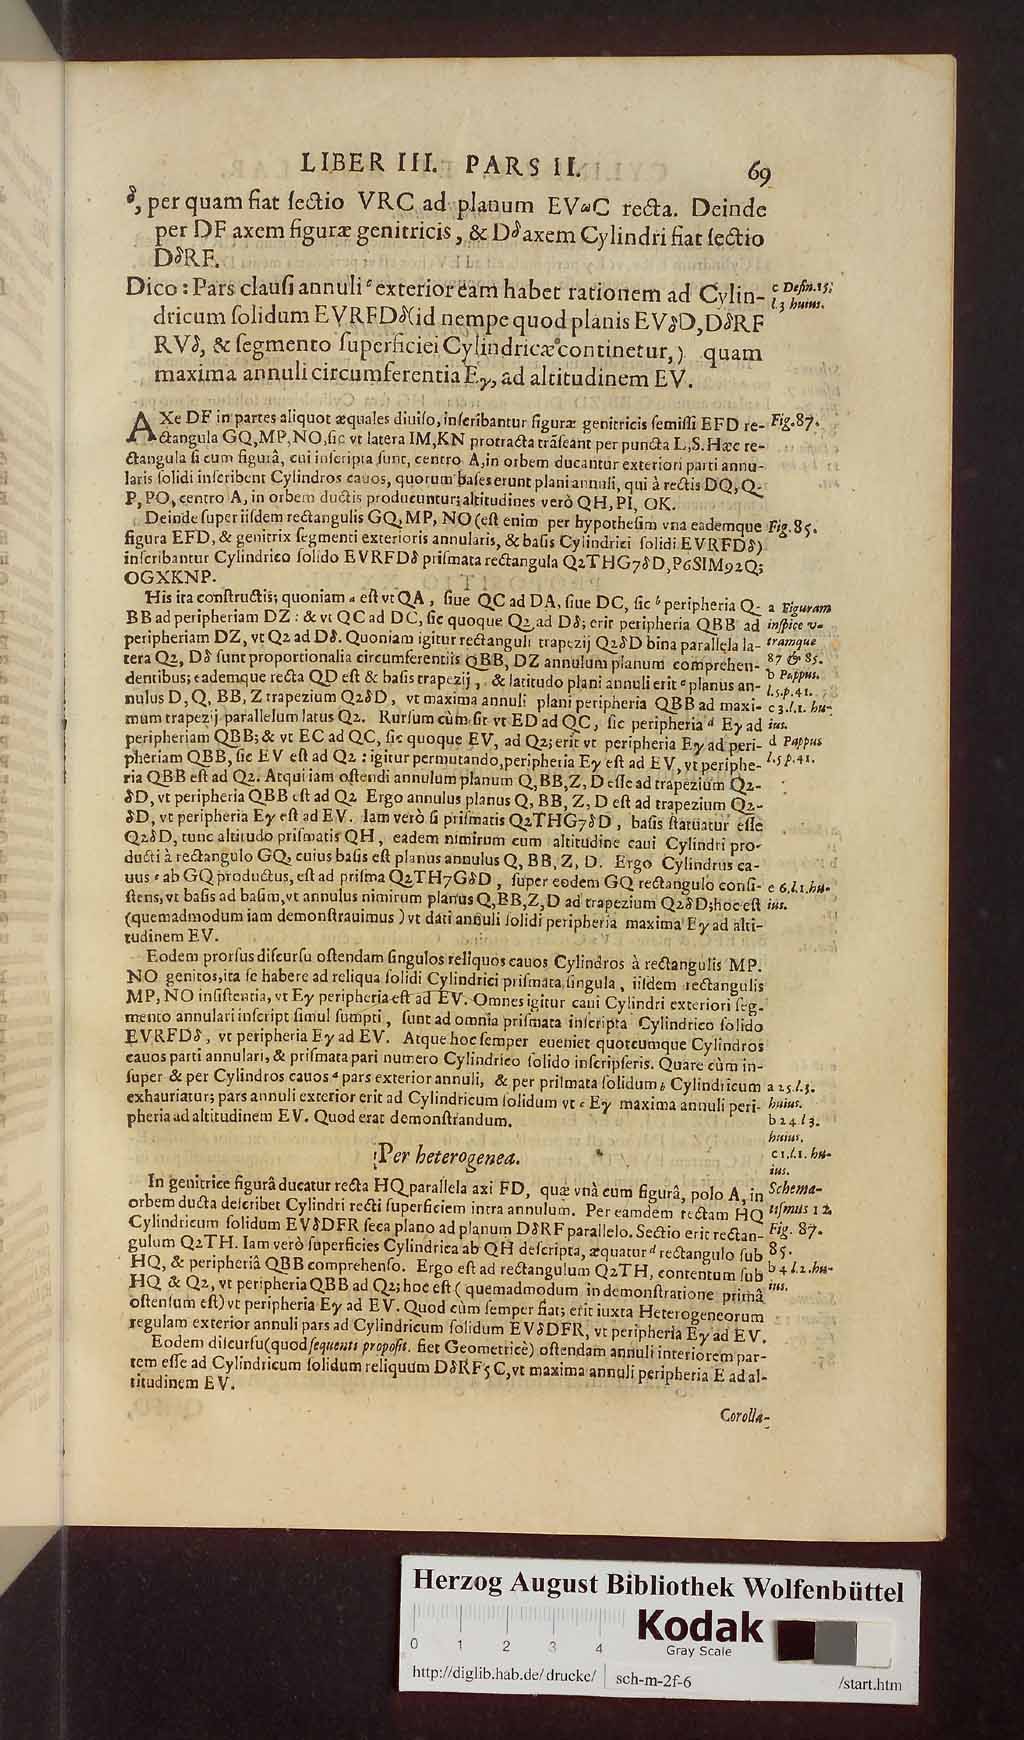 LIBER III. PARS II. 69
δ, per quam fiat ſectio VRC ad planum EVωC recta. Deinde
per DF axem figuræ genitricis, & Dδ axem Cylindri fiat ſectio
DδRF.
Dico: Pars clauſi annuli ᶜ exterior eam habet rationem ad Cylin-
c Defin. 15;
l.3 huius.
dricum ſolidum EVRFDδ (id nempe quod planis EVδD, DδRF
RVδ, & ſegmento ſuperficiei Cylindricæ continetur,) quam
maxima annuli circumferentia Eγ, ad altitudinem EV.
AXe DF in partes aliquot æquales diuiſo, inſcribantur figuræ genitricis ſemiſſi EFD re-
Fig. 87.
ctangula GQ, MP, NO, ſic vt latera IM, KN protracta trãſeant per puncta L, S. Hæc re-
ctangula ſi cum figurâ, cui inſcripta ſunt, centro A, in orbem ducantur exteriori parti annu-
laris ſolidi inſcribent Cylindros cauos, quorum baſes erunt plani annuli, qui à rectis DQ, Q-
P, PO, centro A, in orbem ductis producuntur; altitudines verò QH, PI, OK.
Deinde ſuper iiſdem rectangulis GQ, MP, NO (eſt enim per hypotheſim vna eademque
Fig. 85.
figura EFD, & genitrix ſegmenti exterioris annularis, & baſis Cylindrici ſolidi EVRFDδ)
inſcribantur Cylindrico ſolido EVRFDδ priſmata rectangula Q2THG7δD, P6SIM92Q;
OGXKNP.
His ita conſtructis; quoniam ᵃ eſt vt QA, ſiue QC ad DA, ſiue DC, ſic ᵇ peripheria Q-
a Figuram
BB ad peripheriam DZ: & vt QC ad DC, ſic quoque Q2 ad Dδ; erit peripheria QBB ad
inſpice v-
peripheriam DZ, vt Q2 ad Dδ. Quoniam igitur rectanguli trapezij Q2δD bina parallela la-
tramque
tera Q2, Dδ ſunt proportionalia circumferentiis QBB, DZ annulum planum comprehen-
87 & 85.
dentibus; eademque recta QD eſt & baſis trapezij, & latitudo plani annuli erit ᶜ planus an-
b Pappus.
l.5.p.41.
nulus D, Q, BB, Z trapezium Q2δD, vt maxima annuli plani peripheria QBB ad maxi-
c 3.l.1. hu-
mum trapezij parallelum latus Q2. Rurſum cùm ſit vt ED ad QC, ſic peripheria ᵈ Eγ ad
ius.
peripheriam QBB; & vt EC ad QC, ſic quoque EV, ad Q2; erit vt peripheria Eγ ad peri-
d Pappus
pheriam QBB, ſic EV eſt ad Q2: igitur permutando, peripheria Eγ eſt ad EV, vt periphe-
l.5 p.41.
ria QBB eſt ad Q2. Atqui iam oſtendi annulum planum Q, BB, Z, D eſſe ad trapezium Q2-
δD, vt peripheria QBB eſt ad Q2 Ergo annulus planus Q, BB, Z, D eſt ad trapezium Q2-
δD, vt peripheria Eγ eſt ad EV. Iam verò ſi priſmatis Q2THG7δD, baſis ſtatuatur eſſe
Q2δD, tunc altitudo priſmatis QH, eadem nimirum cum altitudine caui Cylindri pro-
ducti à rectangulo GQ, cuius baſis eſt planus annulus Q, BB, Z, D. Ergo Cylindrus ca-
uus ᵉ ab GQ productus, eſt ad priſma Q2TH7GδD, ſuper eodem GQ rectangulo conſi-
e 6.l.1.hu-
ſtens, vt baſis ad baſim, vt annulus nimirum planus Q, BB, Z, D ad trapezium Q2δD; hoc eſt
ius.
(quemadmodum iam demonſtrauimus) vt dati annuli ſolidi peripheria maxima Eγ ad alti-
tudinem EV.
Eodem prorſus diſcurſu oſtendam ſingulos reliquos cauos Cylindros à rectangulis MP.
NO genitos, ita ſe habere ad reliqua ſolidi Cylindrici priſmata ſingula, iiſdem rectangulis
MP, NO inſiſtentia, vt Eγ peripheria eſt ad EV. Omnes igitur caui Cylindri exteriori ſeg-
mento annulari inſcripti ſimul ſumpti, ſunt ad omnia priſmata inſcripta Cylindrico ſolido
EVRFDδ, vt peripheria Eγ ad EV. Atque hoc ſemper eueniet quotcumque Cylindros
cauos parti annulari, & priſmata pari numero Cylindrico ſolido inſcripſeris. Quare cùm in-
ſuper & per Cylindros cauos ᵃ pars exterior annuli, & per priſmata ſolidum ᵇ Cylindricum
a 25.l.3.
exhauriatur; pars annuli exterior erit ad Cylindricum ſolidum vt ᶜ Eγ maxima annuli peri-
huius.
pheria ad altitudinem EV. Quod erat demonſtrandum.
b 24 l 3.
huius.
Per heterogenea.
c 1.l.1. hu-
ius.
In genitrice figurâ ducatur recta HQ parallela axi FD, quæ vnà cum figurâ, polo A, in
Schema-
orbem ducta deſcribet Cylindri recti ſuperficiem intra annulum. Per eamdem rectam HQ
tiſmus 12.
Cylindricum ſolidum EVδDFR ſeca plano ad planum DδRF parallelo. Sectio erit rectan-
Fig. 87.
gulum Q2TH. Iam verò ſuperficies Cylindrica ab QH deſcripta, æquatur ᵈ rectangulo ſub
85.
HQ, & peripheriâ QBB comprehenſo. Ergo eſt ad rectangulum Q2TH, contentum ſub
b 4 l.2.hu-
HQ & Q2, vt peripheria QBB ad Q2; hoc eſt (quemadmodum in demonſtratione primâ
ius.
oſtenſum eſt) vt peripheria Eγ ad EV. Quod cùm ſemper fiat; erit iuxta Heterogeneorum
regulam exterior annuli pars ad Cylindricum ſolidum EVδDFR, vt peripheria Eγ ad EV.
Eodem diſcurſu (quod ſequenti propoſit. fiet Geometricè) oſtendam annuli interiorem par-
tem eſſe ad Cylindricum ſolidum reliquum DδRF5C, vt maxima annuli peripheria E ad al-
titudinem EV.
Corolla-
Herzog August Bibliothek Wolfenbüttel
Kodak
Gray Scale
0 1 2 3 4
http://diglib.hab.de/drucke/ sch-m-2f-6 /start.htm